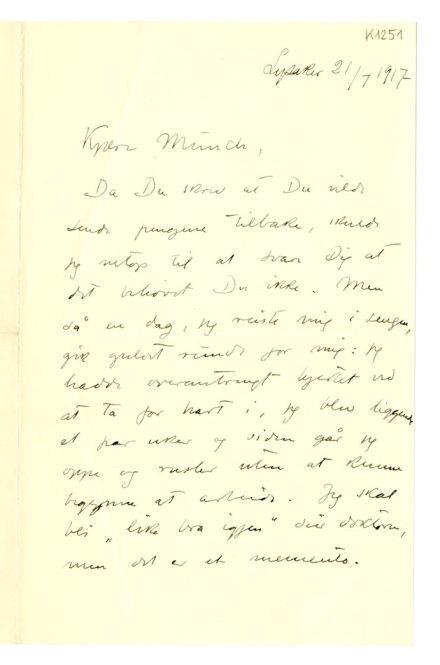 K1251
Lysaker 21/7 1917
Kjære Munch,
Da Du skrev at Du vilde
sende pengene tilbake, skulde
jeg netop til at svare Dig at
det behøvet Du ikke. Men
så en dag, jeg reiste mig i sengen,
gik gulvet rundt for mig: jeg
hadde overanstrengt hjertet ved
at ta for hart i, jeg blev liggende
et par uker og siden går jeg
oppe og rusler uten at kunne
begynne at arbeide. Jeg skal
bli „like bra igjen" sier doktoren,
men det er et memento.